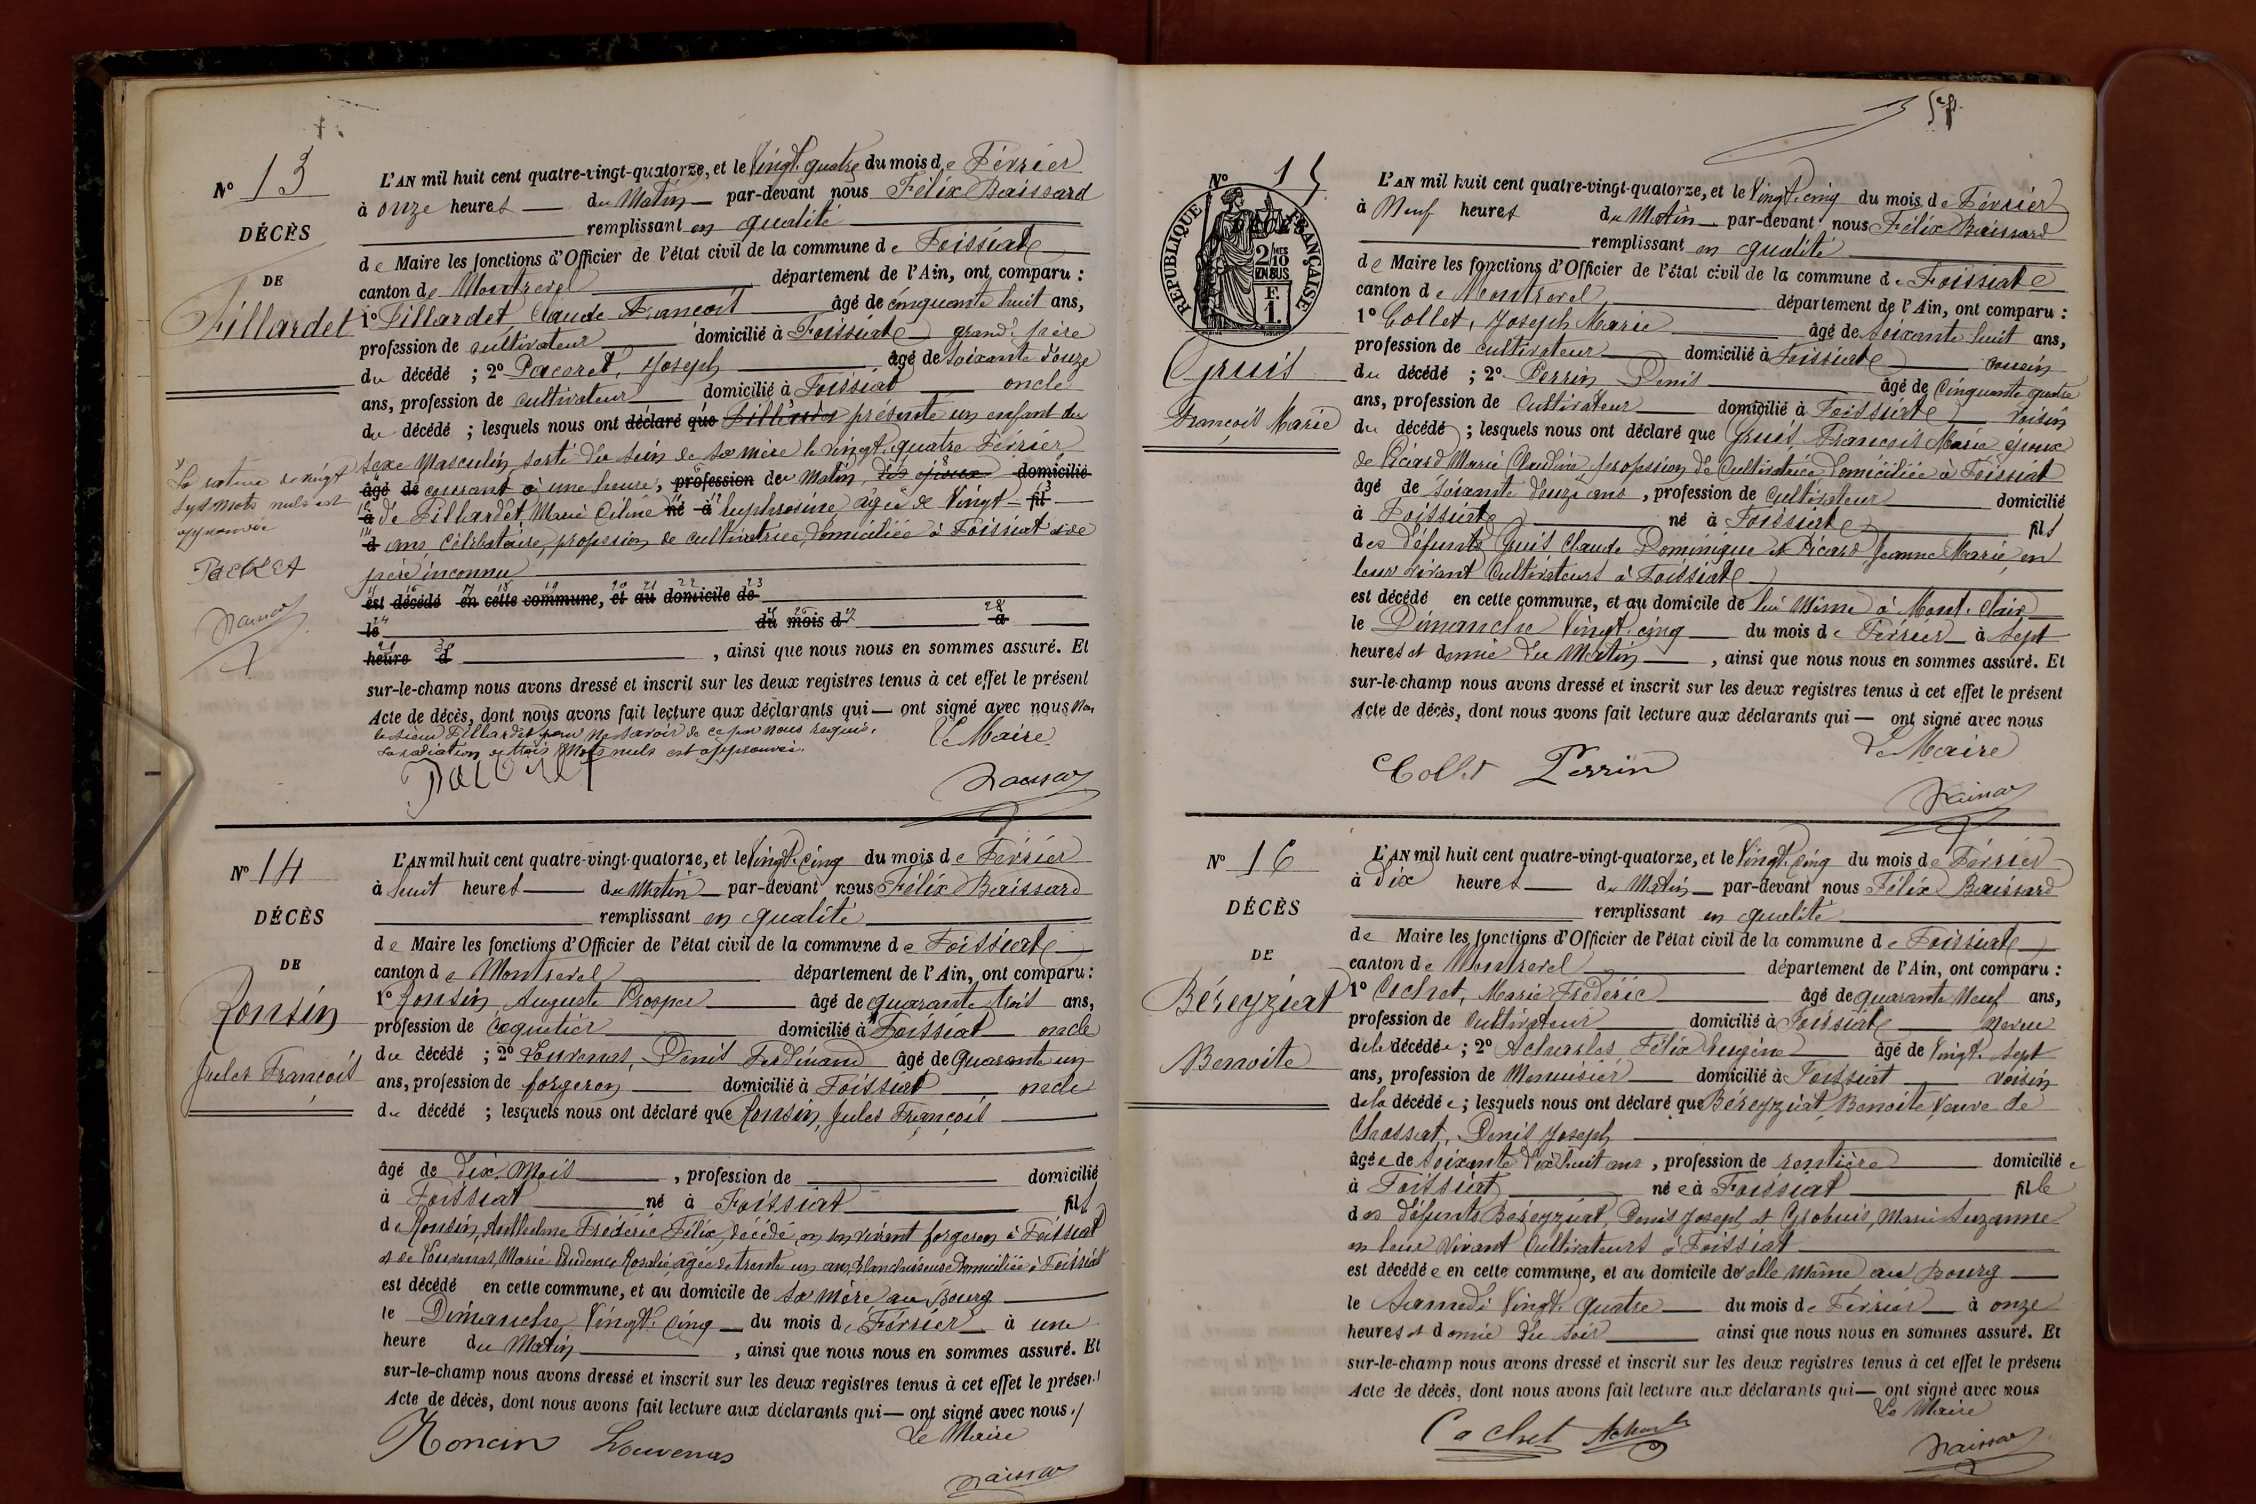 N° 13
DÉCÈS
DE
Fillardet
L'AN mil huit cent quatre-vingt-quatorze, et le Vingt quatre du mois de Février
à onze heures du Matin par-devant nous Félix Baissard
remplissant en qualité
de Maire les fonctions d'Officier de l'état civil de la commune de Foissiat
canton de Montrevel département de l'Ain, ont comparu :
1° Fillardet Claude François âgé de cinquante huit ans,
profession de cultivateur domicilié à Foissiat grand'père
du décédé ; 2° Pacoret, Joseph âgé de soixante douze
ans, profession de cultivateur domicilié à Foissiat oncle
du décédé ; lesquels nous ont déclaré que Fillardet présenté un enfant du
sexe Masculin sorti du sein de sa mère le vingt quatre Février
âgé de courant à une heure, profession du Matin, domicilié
à de Fillardet, Marie Céline né à Euphrosine âgée de Vingt fil
d ans, célibataire, profession de cultivatrice, domiciliée à Foissiat et de
père inconnu
est décédé en cette commune, et au domicile de
le du mois d à
heure d , ainsi que nous nous en sommes assuré. Et
sur-le-champ nous avons dressé et inscrit sur les deux registres tenus à cet effet le présent
Acte de décès, dont nous avons fait lecture aux déclarants qui — ont signé avec nous Non
le sieur Fillardet pour ne savoir de ce par nous requis.
La radiation de trois mots nuls est approuvée.
Le Maire
Pacoret
Baissard
La rature de vingt
sept mots nuls est
approuvée
Pacoret
Baissard
N° 14
DÉCÈS
DE
Ronsin
Jules François
L'AN mil huit cent quatre-vingt-quatorze, et le Vingt cinq du mois de Février
à huit heures du Matin par-devant nous Félix Baissard
remplissant en qualité
de Maire les fonctions d'Officier de l'état civil de la commune de Foissiat
canton de Montrevel département de l'Ain, ont comparu :
1° Ronsin Auguste Prosper âgé de quarante trois ans,
profession de Coquetier domicilié à Foissiat oncle
du décédé ; 2° Louvenas, Denis Ferdinand âgé de Quarante un
ans, profession de forgeron domicilié à Foissiat oncle
du décédé ; lesquels nous ont déclaré que Ronsin, Jules François
âgé de dix Mois , profession de domicilié
à Foissiat né à Foissiat fils
de Ronsin, Anthelme Frédéric Félix, décédé, en son vivant forgeron à Foissiat
et de Louvenas, Marie Prudence Rosalie, âgée de trente un ans, blanchisseuse Domiciliée à Foissiat
est décédé en cette commune, et au domicile de sa mère au Bourg
le Dimanche Vingt cinq du mois de Février à une
heure du Matin , ainsi que nous nous en sommes assuré. Et
sur-le-champ nous avons dressé et inscrit sur les deux registres tenus à cet effet le présent
Acte de décès, dont nous avons fait lecture aux déclarants qui — ont signé avec nous
Le Maire
Roncin Louvenas
Baissard
N° 15
RÉPUBLIQUE FRANÇAISE
2/10 EN SUS
F. 1.
Gruis
François Marie
L'AN mil huit cent quatre-vingt-quatorze, et le Vingt cinq du mois de Février
à Neuf heures du Matin par-devant nous Félix Baissard
remplissant en qualité
de Maire les fonctions d'Officier de l'état civil de la commune de Foissiat
canton de Montrevel département de l'Ain, ont comparu :
1° Collet, Joseph Marie âgé de soixante huit ans,
profession de cultivateur domicilié à Foissiat cousin
du décédé ; 2° Perrin Denis âgé de Cinquante quatre
ans, profession de Cultivateur domicilié à Foissiat voisin
du décédé ; lesquels nous ont déclaré que Gruis François Marie époux
de Picard Marie Claudine profession de Cultivatrice domiciliée à Foissiat
âgé de soixante douze ans , profession de Cultivateur domicilié
à Foissiat né à Foissiat fils
des défunts Gruis Claude Dominique et Picard Jeanne Marie, en
leur vivant Cultivateurs à Foissiat
est décédé en cette commune, et au domicile de lui Même à Mont-Clair
le Dimanche Vingt cinq du mois de Février à sept
heures et demie du Matin , ainsi que nous nous en sommes assuré. Et
sur-le-champ nous avons dressé et inscrit sur les deux registres tenus à cet effet le présent
Acte de décès, dont nous avons fait lecture aux déclarants qui — ont signé avec nous
Le Maire
Collet Perrin
Baissard
N° 16
DÉCÈS
DE
Béreyziat
Benoite
L'AN mil huit cent quatre-vingt-quatorze, et le Vingt cinq du mois de Février
à dix heures du Matin par-devant nous Félix Baissard
remplissant en qualité
de Maire les fonctions d'Officier de l'état civil de la commune de Foissiat
canton de Montrevel département de l'Ain, ont comparu :
1° Cachet, Marie Frédéric âgé de quarante Neuf ans,
profession de Cultivateur domicilié à Foissiat neveu
de la décédée ; 2° Félix Eugène âgé de Vingt sept
ans, profession de Menuisier domicilié à Foissiat voisin
de la décédée ; lesquels nous ont déclaré que Béreyziat, Benoite, Veuve de
Chossat, Denis Joseph
âgée de soixante dix huit ans , profession de rentière domiciliée
à Foissiat née à Foissiat fille
des défunts Béreyziat, Denis Joseph et Grobuis, Marie Suzanne
en leur vivant Cultivateurs à Foissiat
est décédée en cette commune, et au domicile de elle même au Bourg
le Samedi Vingt quatre du mois de Février à onze
heures et demie du soir ainsi que nous nous en sommes assuré. Et
sur-le-champ nous avons dressé et inscrit sur les deux registres tenus à cet effet le présent
Acte de décès, dont nous avons fait lecture aux déclarants qui — ont signé avec nous
Le Maire
Cachet
Baissard